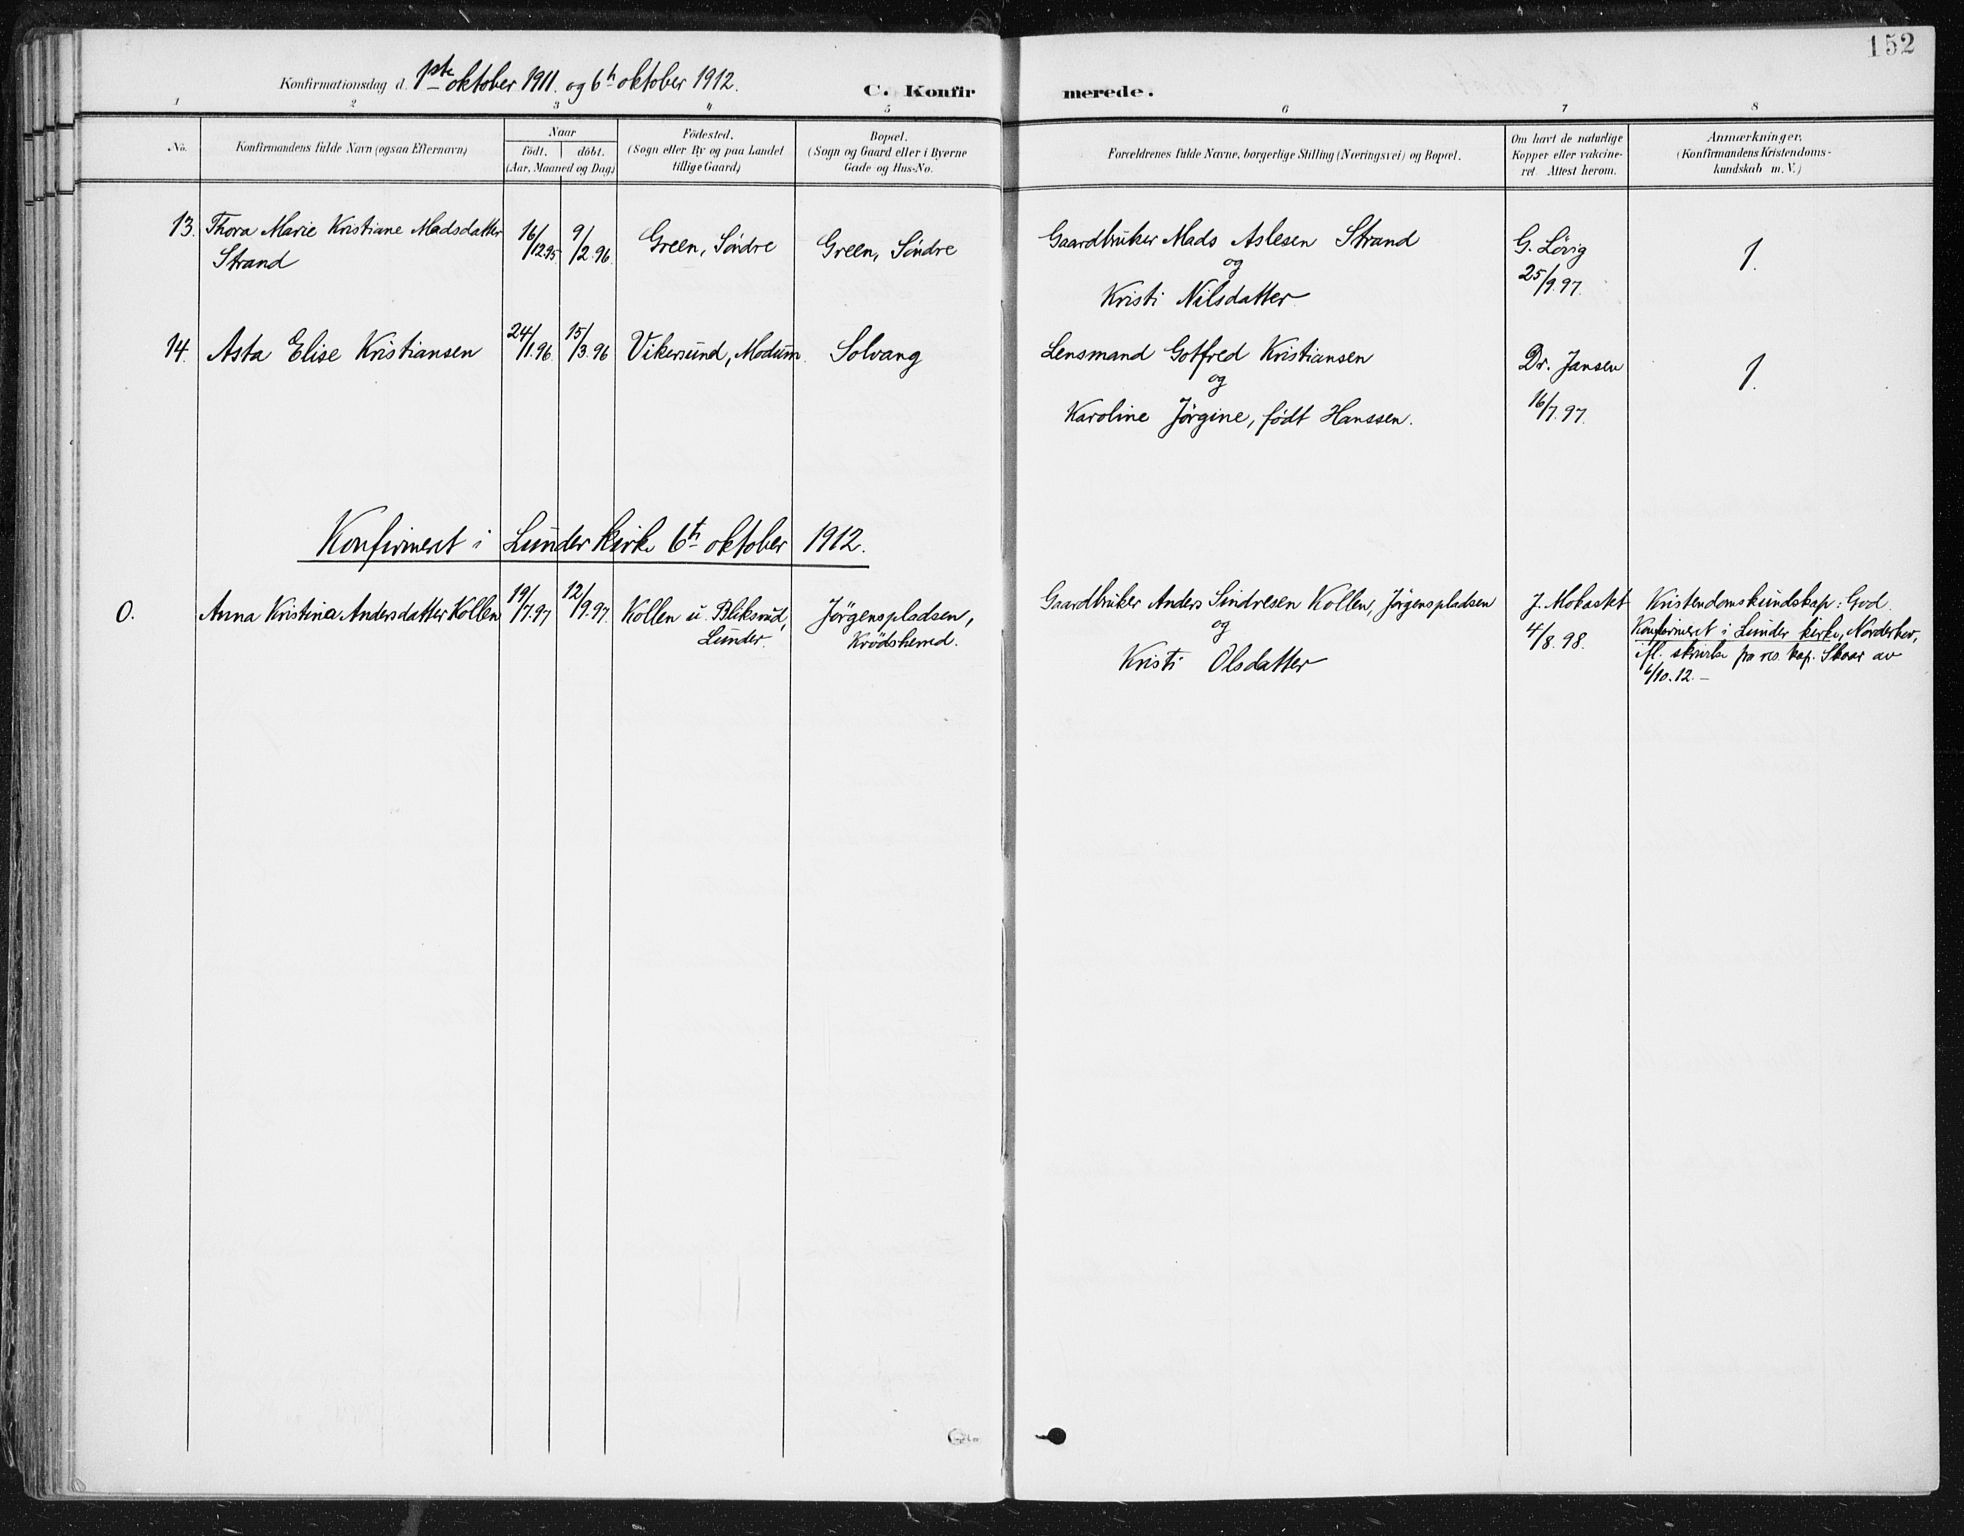 152
Konfirmationsdag d. 1ste oktober 1911. og 6te oktober 1912.
C. Konfir merede.
1 2 3 4 5 6 7 8
No.
Konfirmandens fulde Navn (ogsaa Efternavn)
Naar
födt. döbt.
(Aar, Maaned og Dag)
Födested.
(Sogn eller By og paa Landet
tillige Gaard)
Bopæl.
(Sogn og Gaard eller i Byerne
Gade og Hus-No.
Forældrenes fulde Navne, borgerlige Stilling (Næringsvei) og Bopæl.
Om havt de naturlige
Kopper eller vakcine-
ret. Attest herom.
Anmærkninger.
(Konfirmandens Kristendoms-
kundskab m. V.)
13. Thora Marie Kristiane Madsdatter
Strand
16/12.95 9/2.96.
Green, Söndre
Green, Söndre
Gaardbruker Mads Aslesen Strand
og
Kristi Nilsdatter
G. Lövig
25/9.97.
1.
14. Asta Elise Kristiansen
24/1.96. 15/3.96
Vikersund, Modum.
Solvang
Lensmand Gotfred Kristiansen
og
Karoline Jørgine, født Hanssen.
Dr. Jansen
16/7.97.
1.
Konfirmeret i Lunder kirke 6te oktober 1912.
0. Anna Kristina Andersdatter Kollen
19/7.97 12/9.97.
Kollen u. Bliksrud,
Lunder.
Jörgenspladsen,
Krödsherred.
Gaardbruker Anders Sindresen Kollen, Jørgenspladsen
og
Kristi Olsdatter
J. Mokastet
4/8.98.
Kristendomskundskap: God.
Konfirmeret i Lunder kirke, Norderhov,
ifl. skrivelse fra res. kap. Skaar av
6/10.12.—